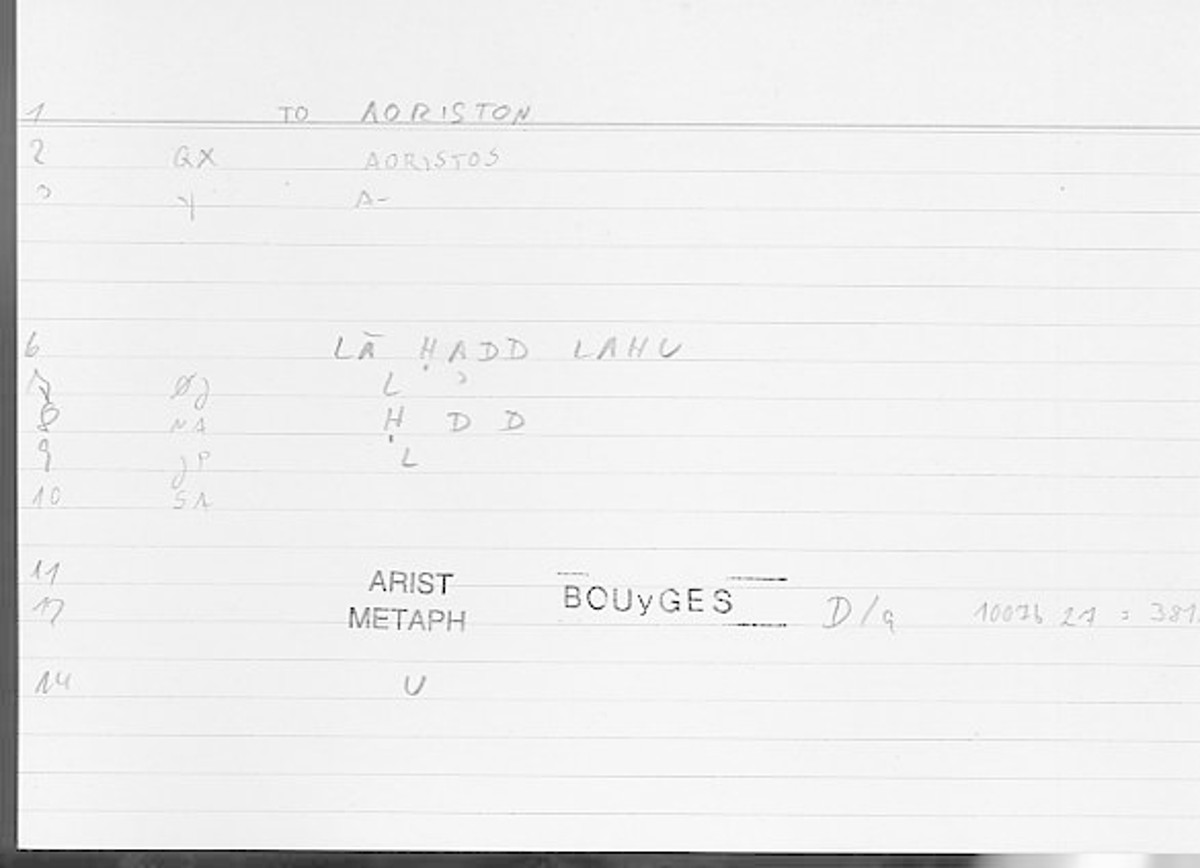 1 TO AORISTON
2 GX AORISTOS
3 Y A-
6 LĀ ḤADD LAHU
7 Øj L ʾ
8 NA Ḥ D D
9 jP L
10 SA
11 ARIST
12 METAPH BOUyGES D/a
14 U